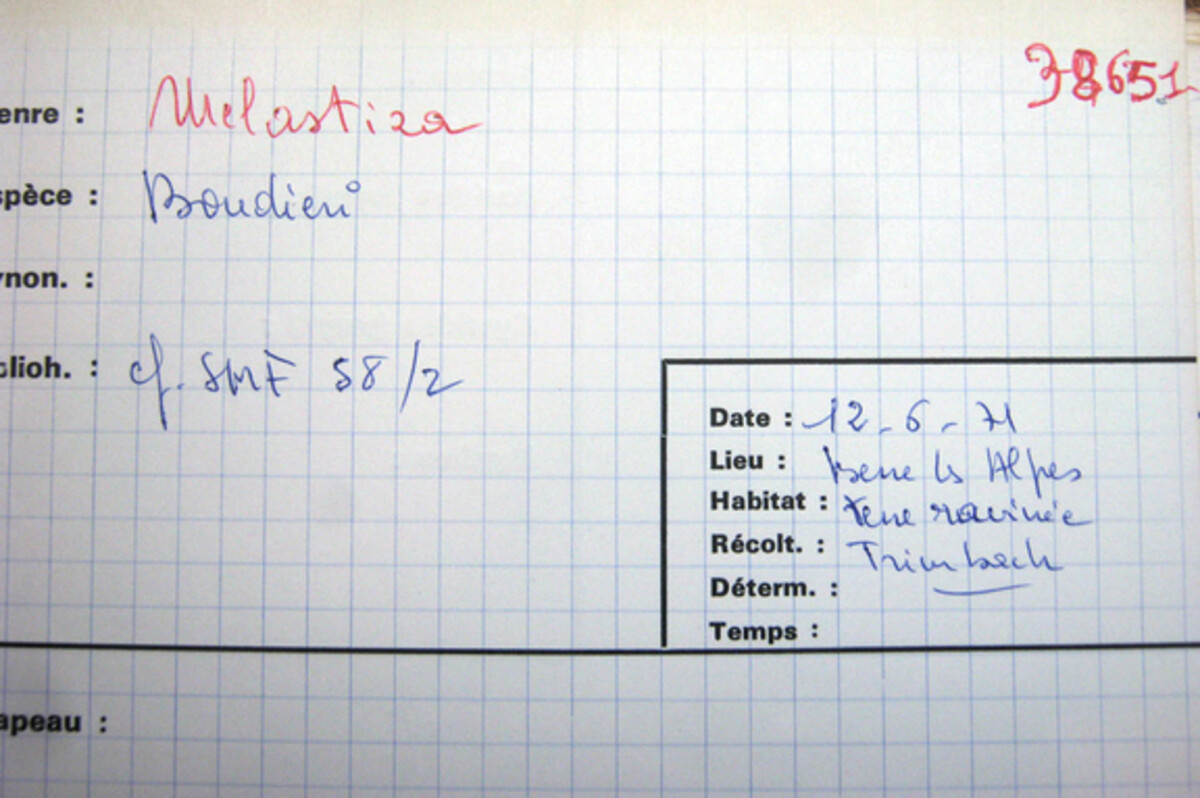 38651
enre : Melastiza
spèce : Boudieri
ynon. :
blioh. : cf. SMF 58/2
Date : 12-6-71
Lieu : les Alpes
Habitat : terre ravinée
Récolt. : Trimbach
Déterm. :
Temps :
apeau :